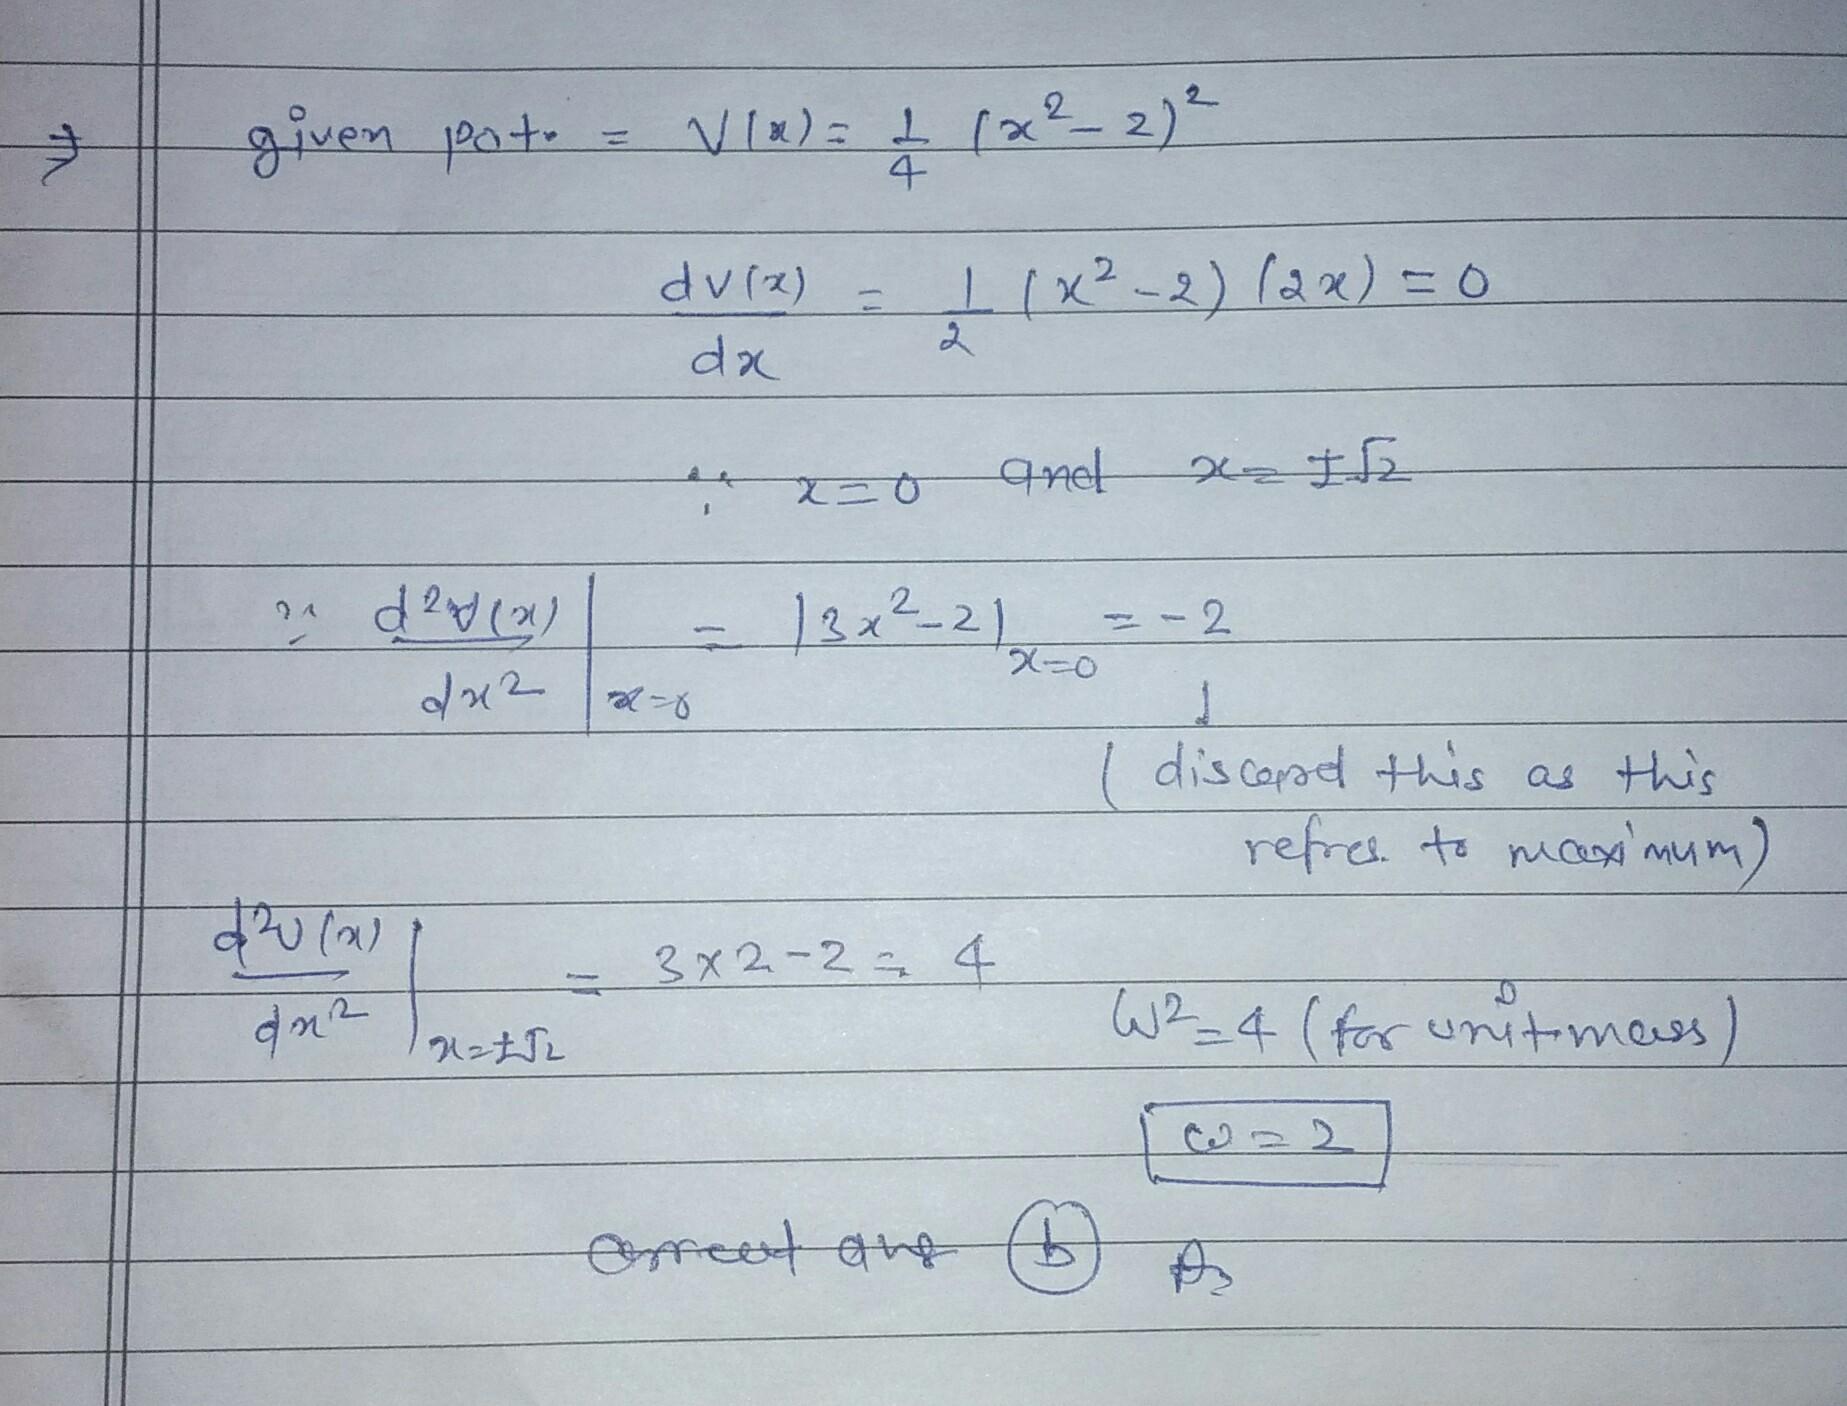 ⇒ given pot. = V(x) = 1/4 (x² - 2)²
dv(x)/dx = 1/2 (x² - 2) (2x) = 0
∴ x = 0 and x = ±√2
∵ d²V(x)/dx² |x=0 = |3x² - 2|x=0 = -2
↓
( discard this as this
refres to maximum)
d²v(x)/dx² |x=±√2 = 3×2-2 = 4
ω² = 4 (for unit mass)
ω = 2
correct ans (b)